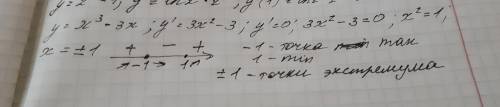 y = x³ - 3x ; y' = 3x² - 3 ; y' = 0 ; 3x² - 3 = 0 ; x² = 1 ;
x = ± 1 + - + -1 - точка max
↗ -1 ↘ 1 ↗ 1 - min
± 1 - точки экстремума